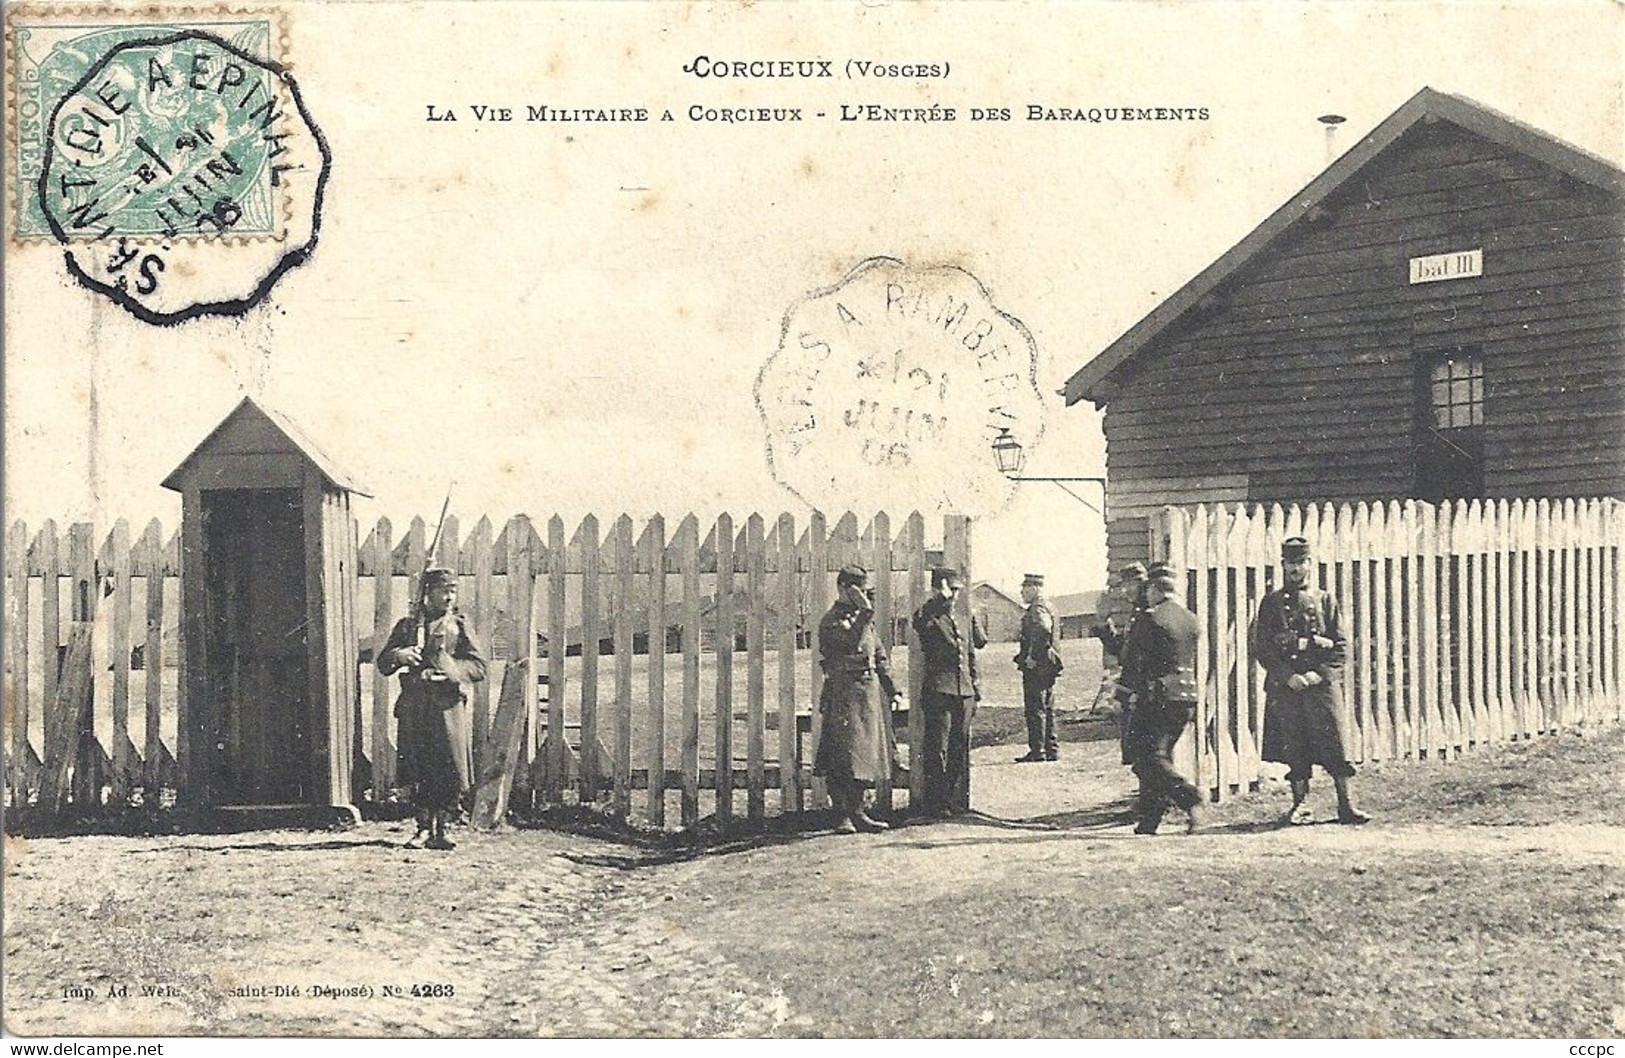 CORCIEUX (VOSGES)
LA VIE MILITAIRE A CORCIEUX - L'ENTRÉE DES BARAQUEMENTS
POSTES
5
SAINT-DIE A EPINAL
21
JUIN
06
A RAMBERV
21
JUIN
06
bat III
Imp. Ad. Saint-Dié (Déposé) No 4263
cccpc